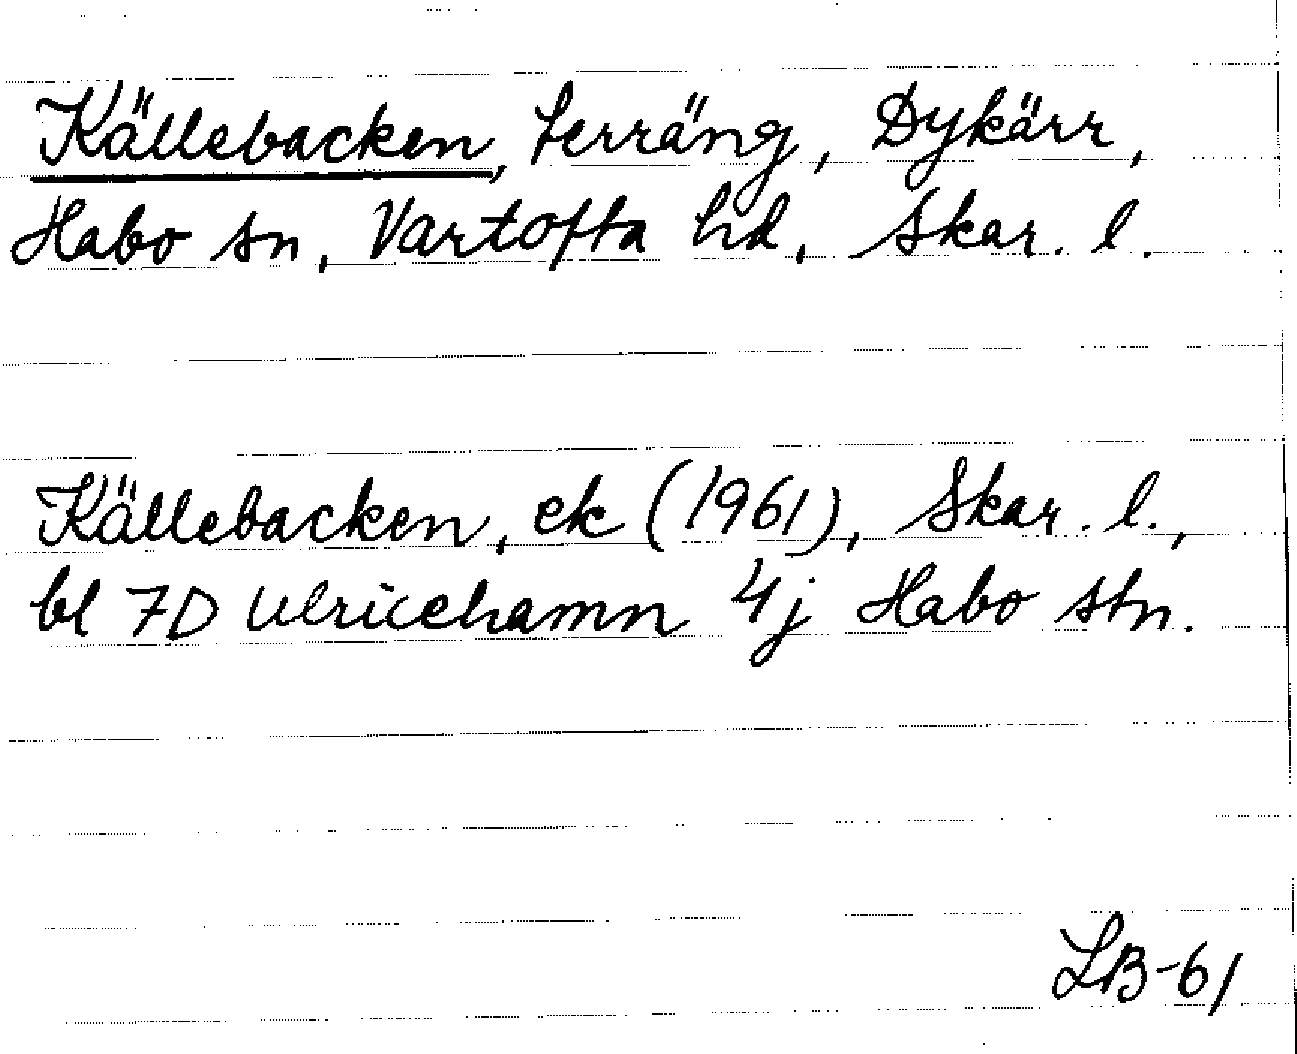 Källebacken, terräng, Dykärr,
Habo sn, Vartofta hd, Skar. l.
Källebacken, ek (1961), Skar. l.,
bl 7D Ulricehamn 4j Habo stn.
LB-61